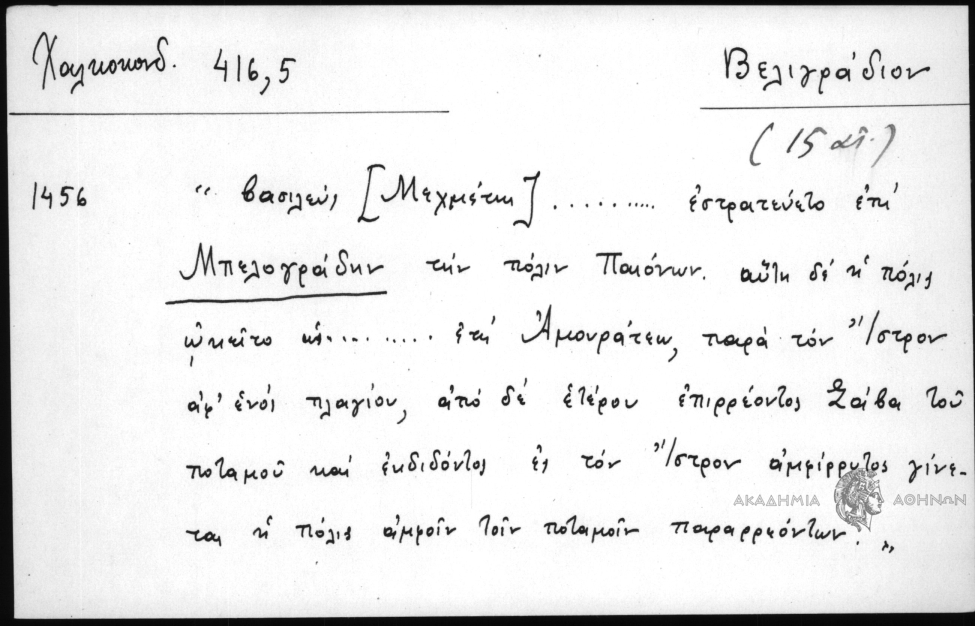 Χαλκοκονδ. 416,5
Βελιγράδιον
(15 αἰ.)
1456 “ βασιλεύς [Μεχμέτης] .......... ἐστρατεύετο ἐπὶ
Μπελογράδην τὴν πόλιν Παιόνων. αὕτη δέ ἡ πόλις
ᾠκεῖτο ὡς.......... ἐπὶ Ἀμουράτεω, παρὰ τόν Ἴστρον
ἀφ' ἑνός πλαγίου, ἀπό δέ ἑτέρου ἐπιρρέοντος Σάβα τοῦ
ποταμοῦ καί ἐκδιδόντος ἐς τόν Ἴστρον ἀμφίρρυτος γίνε-
ται ἡ πόλις ἀμφοῖν τοῖν ποταμοῖν παραρρεόντων. „
ΑΚΑΔΗΜΙΑ ΑΘΗΝΩΝ